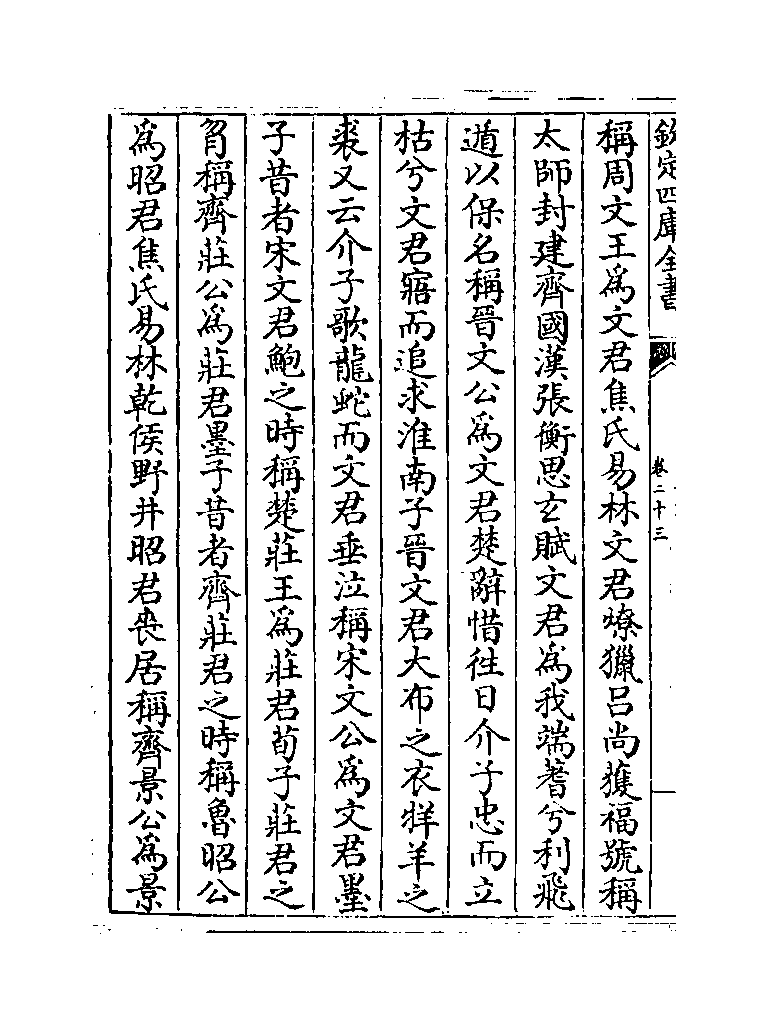 欽定四庫全書
卷二十三
稱周文王爲文君焦氏易林文君燎獵吕尚獲福號稱
太師封建齊國漢張衡思玄賦文君爲我端蓍兮利飛
遁以保名稱晉文公爲文君楚辭惜往日介子忠而立
枯兮文君寤而追求淮南子晉文君大布之衣牂羊之
裘又云介子歌龍蛇而文君垂泣稱宋文公爲文君墨
子昔者宋文君鮑之時稱楚莊王爲莊君荀子莊君之
曶稱齊莊公爲莊君墨子昔者齊莊君之時稱魯昭公
爲昭君焦氏易林乾侯野井昭君喪居稱齊景公爲景